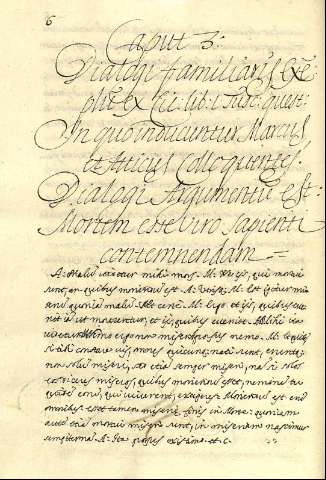 6
Caput 3:
Dialogi familiaris Exẽ
plũ ex Cic: lib: 1 Tusc: quest:
In quo inducuntur Marcus
et Atticus Colloquentes.
Dialogi Argumentũ est:
Mortem esse viro sapienti
contemnendam
A: Malũ videtur mihi mors. M: Ys ne, qui mortui
sunt, an quibus moriendũ est A: Utrisq; M: Est igitur mi
serũ quoniã malũ. A: Certe. M: Ergo et ij, quibus eve
nit iã ut morerentur, et ij, quibus eventurũ
videtur. Nemo ergo non miser. prorsus nemo. M: Et quidẽ
si tibi constare vis, omnes quicunq; nati sunt, eruntq;
non solũ miseri, sed etiã semper miseri, nã si solos
eos miseros, quibus moriendũ esset, neminẽ tu
quidẽ eorũ, qui viverent, exciperes. Moriendũ est enĩ
omnibus: esset tamen miseriæ finis in Morte: quoniam
autẽ etiã mortui miseri sunt, in miseriam nascimur
sempiternã. A: Ita prorsus existimo. et c.